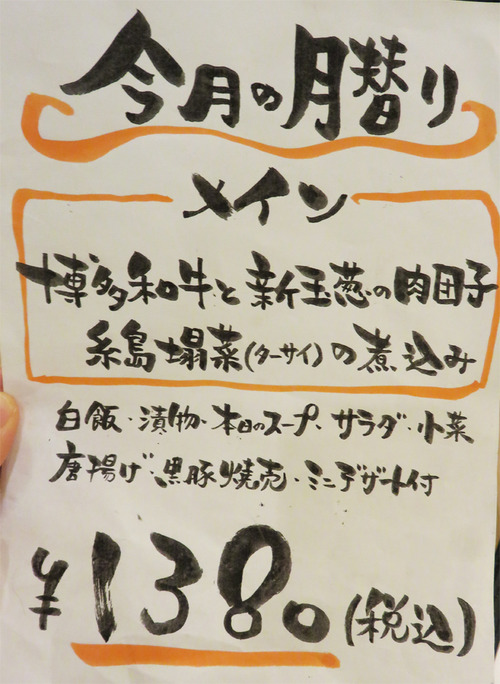 今月の月替り
メイン
博多和牛と新玉葱の肉団子
糸島塌菜(ターサイ)の煮込み
白飯・漬物・本日のスープ・サラダ・小菜
唐揚げ・黒豚焼売・ミニデザート付
¥1380(税込)